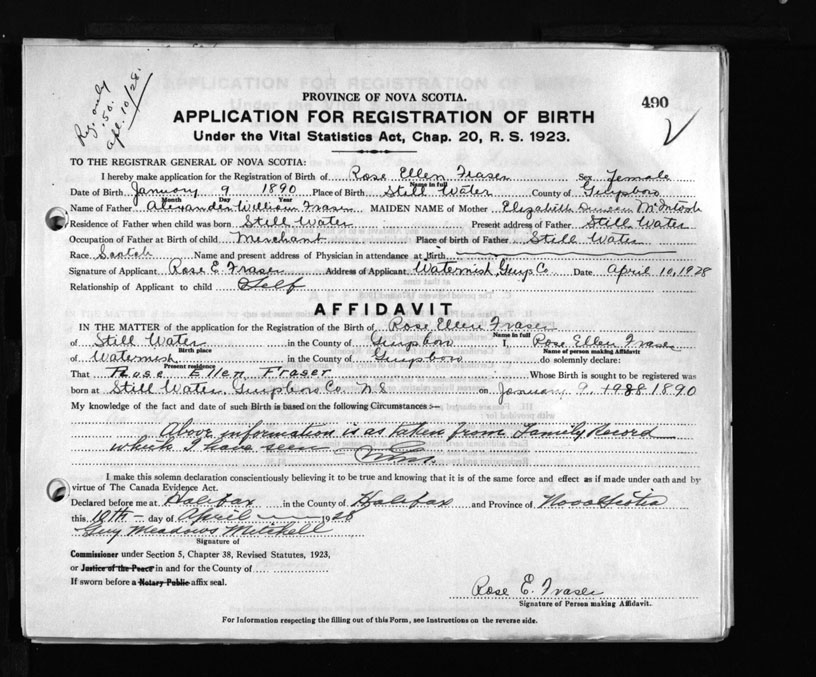 Reg. only
.50.
Apl. 10/28.
PROVINCE OF NOVA SCOTIA.
490
APPLICATION FOR REGISTRATION OF BIRTH
Under the Vital Statistics Act, Chap. 20, R. S. 1923.
TO THE REGISTRAR GENERAL OF NOVA SCOTIA:
I hereby make application for the Registration of Birth of Rose Ellen Fraser Sex Female
Name in full
Date of Birth January 9 1890 Place of Birth Still Water County of Guysboro
Month Day Year
Name of Father Alexander William Fraser MAIDEN NAME of Mother Elizabeth McIntosh
Residence of Father when child was born Still Water Present address of Father Still Water
Occupation of Father at Birth of child Merchant Place of birth of Father Still Water
Race Scotch Name and present address of Physician in attendance at Birth
Signature of Applicant Rose E. Fraser Address of Applicant Waternish, Guys Co Date April 10, 1928
Relationship of Applicant to child Self
AFFIDAVIT
IN THE MATTER of the application for the Registration of the Birth of Rose Ellen Fraser
Name in full
of Still Water in the County of Guysboro I, Rose Ellen Fraser
Birth place Name of person making Affidavit
of Waternish in the County of Guysboro do solemnly declare:
Present residence
That Rose Ellen Fraser Whose Birth is sought to be registered was
born at Still Water Guysboro Co. N S on January 9, 1988 1890
My knowledge of the fact and date of such Birth is based on the following Circumstances :—
Above information is as taken from Family Record
which I have seen
I make this solemn declaration conscientiously believing it to be true and knowing that it is of the same force and effect as if made under oath and by
virtue of The Canada Evidence Act.
Declared before me at Halifax in the County of Halifax and Province of Nova Scotia
this 10th day of April 1928
Guy Meadows Mitchell
Signature of
Commissioner under Section 5, Chapter 38, Revised Statutes, 1923,
or Justice of the Peace in and for the County of
If sworn before a Notary Public affix seal.
Rose E. Fraser
Signature of Person making Affidavit.
For Information respecting the filling out of this Form, see Instructions on the reverse side.